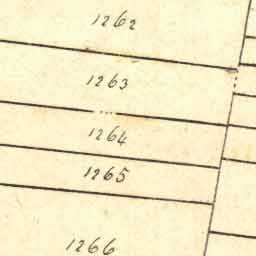 1262
1263
1264
1265
1266